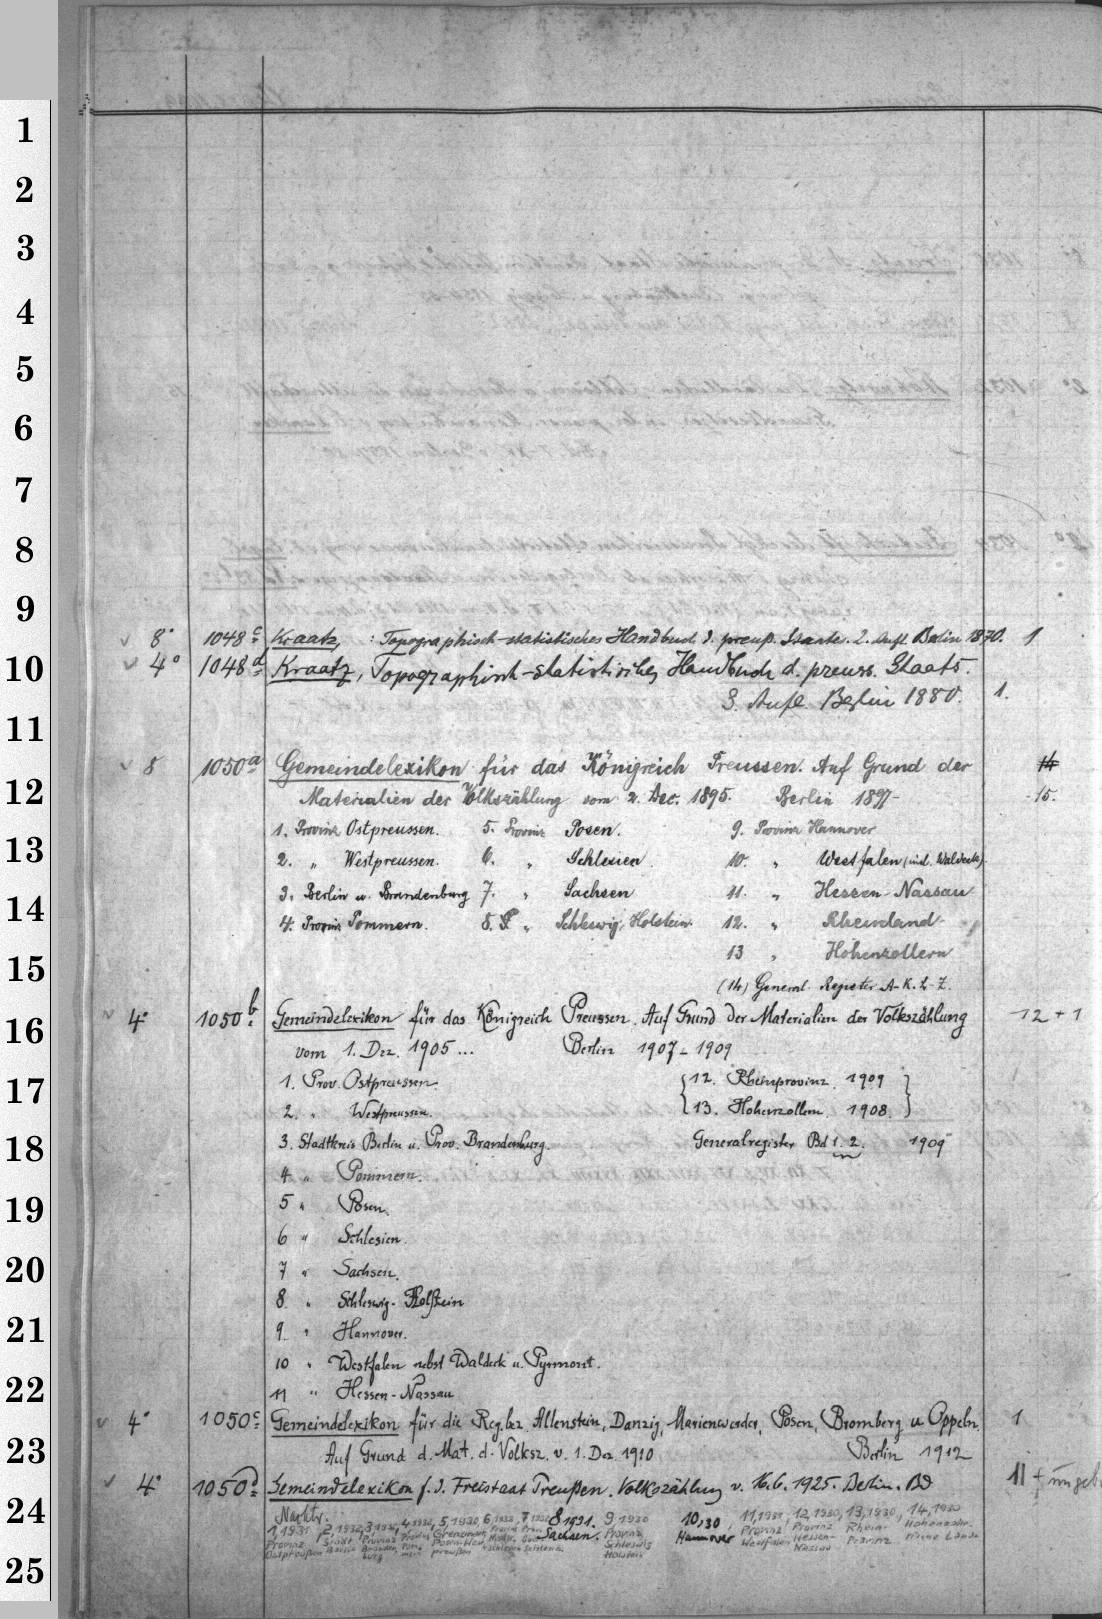 1
2
3
4
5
6
7
8
9
8° 1048c Kraatz, : Topographisch-statistisches Handbuch d. preuß. Staate. 2. Aufl. Berlin 1870. 1
10
4° 1048d Kraatz, Topographisch-statistisches Handbuch d. preuss. Staats.
3. Aufl. Berlin 1880. 1.
11
8 1050a Gemeindelexikon für das Königreich Preussen. Auf Grund der 14
12
Materialien der Volkszählung vom 2. Dec. 1895. Berlin 1897- 15.
1. Provinz Ostpreussen. 5. Provinz Posen. 9. Provinz Hannover
13
2. " Westpreussen. 6. " Schlesien. 10. " Westfalen (incl. Waldeck)
3. Berlin u. Brandenburg 7. " Sachsen 11. " Hessen-Nassau
14
4. Provinz Pommern. 8. " Schleswig, Holstein. 12. " Rheinland
13 " Hohenzollern
15
(14) General Register A-K. L-Z.
4° 1050b. Gemeindelexikon für das Königreich Preussen. Auf Grund der Materialien der Volkszählung 12 + 1
16
vom 1. Dez. 1905 ... Berlin 1907-1909
1. Prov. Ostpreussen {12. Rheinprovinz. 1909
17
2. " Westpreussen. 13. Hohenzollern. 1908}
3. Stadtkreis Berlin u. Prov. Brandenburg. Generalregister Bd 1. 2. 1909
18
4 " Pommern.
5 " Posen.
19
6 " Schlesien.
7 " Sachsen.
20
8 " Schleswig-Holstein
9 " Hannover.
21
10 " Westfalen nebst Waldeck u. Pyrmont.
11 " Hessen-Nassau
22
4° 1050c Gemeindelexikon für die Reg.bez. Allenstein, Danzig, Marienwerder, Posen, Bromberg u Oppeln. 1
23
Auf Grund d. Mat. d. Volksz. v. 1. Dez. 1910 Berlin 1912
4° 1050d Gemeindelexikon f. d. Freistaat Preußen. Volkszählung v. 16.6.1925. Berlin. Bd 11 +
24
Nachtr.
1,1931 2,1932, 3,1931, 4,1930, 5,1930 6,1933, 7,1932 8 1931. 9,1930 10,30, 11,1931, 12,1930, 13,1930, 14,1930
Provinz Stadt Provinz Provinz Grenzmark Sachsen. Provinz Hannover Provinz Provinz Rhein- Hohenzoller.
Ostpreußen Berlin Branden- Posen-West- Schleswig Westfalen Hessen- Provinz
burg preußen Holstein Nassau
25